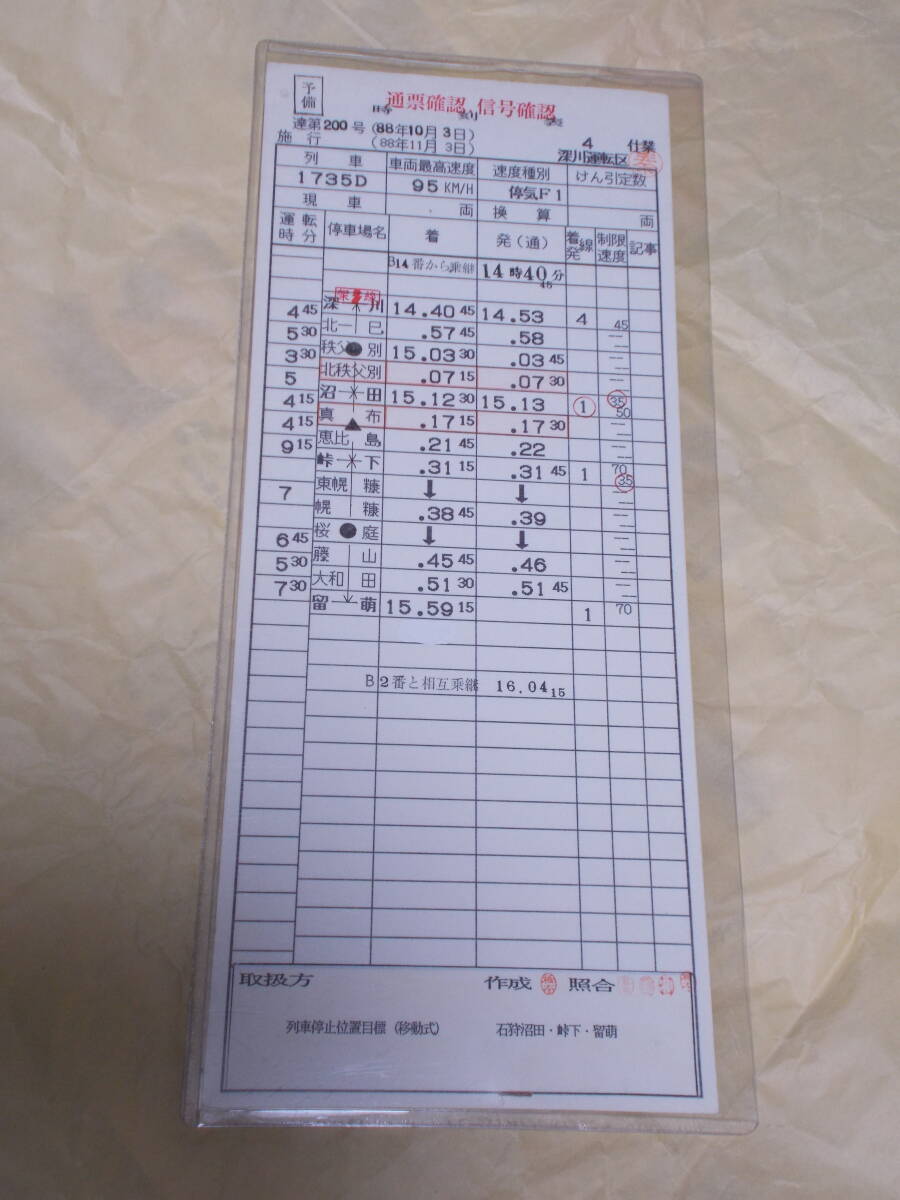 予備
通票確認 信号確認
時 刻 表
達第200号 (88年10月 3日)
施 行 (88年11月 3日)
4 仕業
深川運転区
列 車 車両最高速度 速度種別 けん引定数
1735D 95 KM/H 停気F1
現 車 両 換 算 両
運転時分 停車場名 着 発(通) 着発線 制限速度 記事
B14番から乗継 14時40分45
深 川 14.40 45 14.53 4 45
4 45
北一 已 .57 45 .58
5 30
秩父 別 15.03 30 .03 45
3 30
北秩父別 .07 15 .07 30
5
沼 田 15.12 30 15.13 1 35 50
4 15
真 布 .17 15 .17 30
4 15
恵比 島 .21 45 .22
9 15
峠 下 .31 15 .31 45 1 70 35
東幌 糠 ↓ ↓
7
幌 糠 .38 45 .39
桜 庭 ↓ ↓
6 45
藤 山 .45 45 .46
5 30
大和 田 .51 30 .51 45
7 30
留 萌 15.59 15 1 70
B2番と相互乗継 16.04 15
取扱方 作成 照合
列車停止位置目標(移動式) 石狩沼田・峠下・留萌